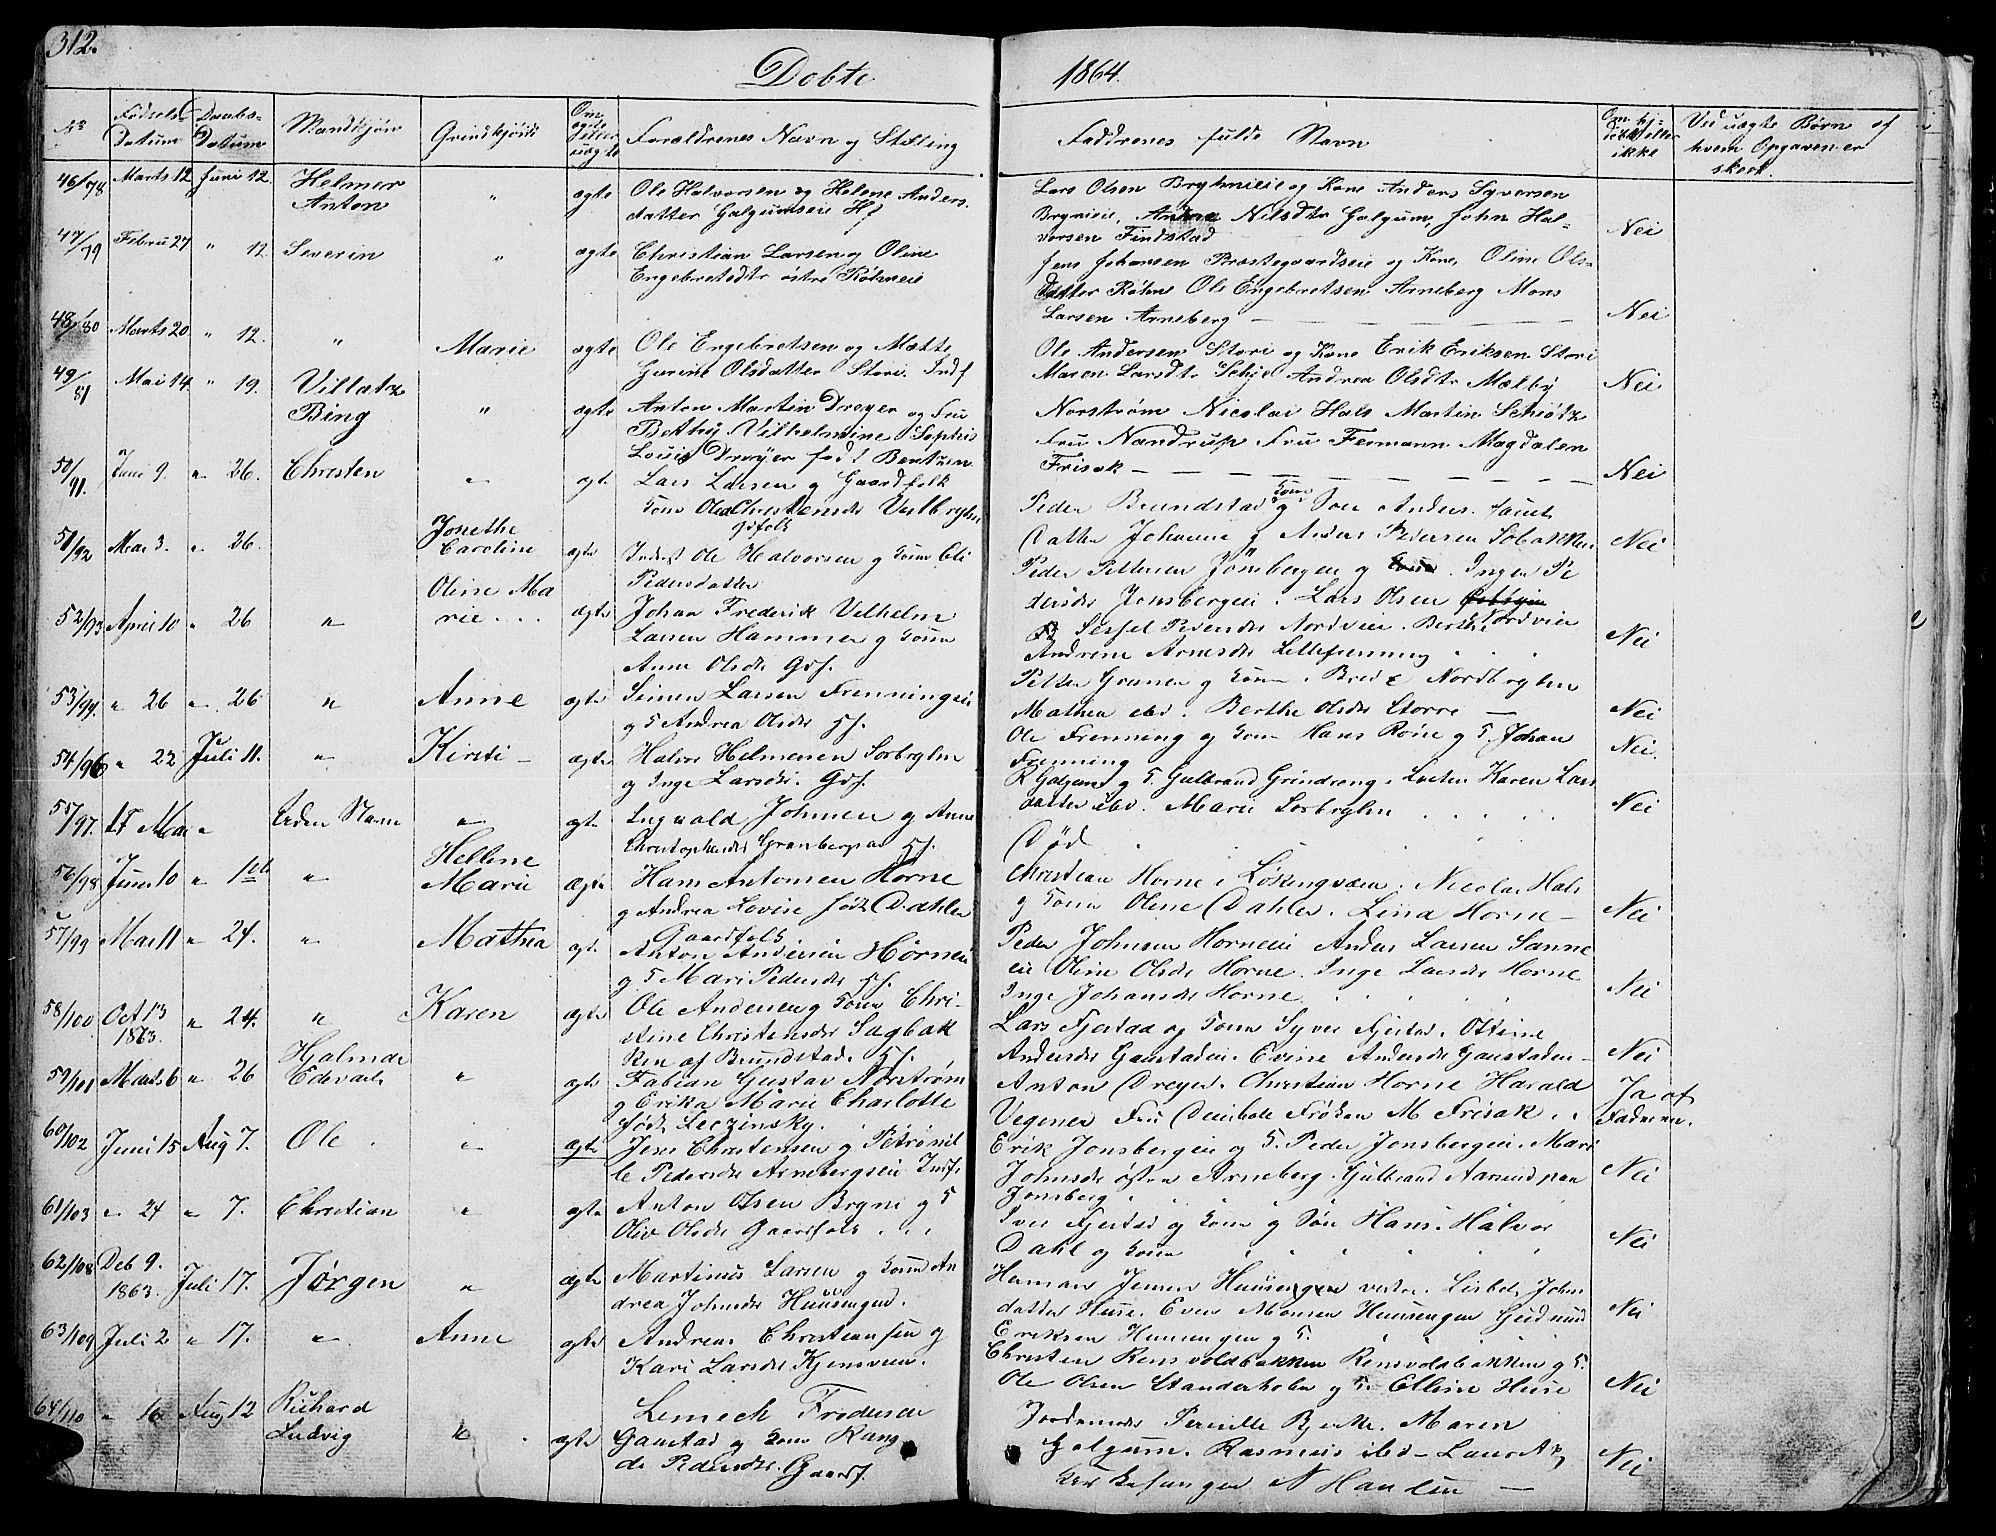 312.
Døbte
1864.
No Fødsels- Datum Daabs- Datum Mandkjøn Qvindkjønn Om ægte eller uægte Forældrenes Navn og Stilling
Faddrenes fulde Navn
ikke
Ved uægte Børn af hvem Opgaven er skeet.
46/78 Marts 12 Juni 12. Helmer Anton " ægte Ole Halvorsen og Helene Anders-
datter Galgumseie Hf
Lars Olsen Bryhnieie og Kone Anders Syversen
Brynieie, Nilsdtr Galgum, John Hal-
vorsen Findstad Nei
47/79 Febru 27 " 12. Severin " ægte Christian Larsen og Oline
Engebretsdtr østre Røhneeie
Jens Johansen Præstegaardseie og Kone, Oline Ols-
datter Røhne Ole Engebretsen Arneberg Mons
Larsen Arneberg Nei
48/80 Marts 20 " 12. " Marie ægte Ole Engebretsen og Mætte
Gurine Olsdatter Stori. Indf
Ole Andersen Stori og Kone Erik Eriksen Stori
Maren Larsdtr Andrea Olsdtr Mælby Nei
49/81 Mai 14. " 19. Villatz
Bing " ægte Anton Martin Dreyer og Fru
Bethy Vilhelmine Sophie
Louise Dreyer født Bertsen
Norstrøm Nicolai Hals Martin Schiøtz
Fru Nandrup Fru Fermann Magdalen
Frisak Nei
50/91. Juni 9. " 26. Christen " ægte Lars Larsen og Gaardfolk
Peder Brundstad og Søn Anders samt
Datter Johanne og Anders Pedersen Solbakken Nei
51/92 Mai 3. " 26. Josethe
Caroline ægte Inderst Ole Halvorsen og Kone Oli
Pedersdatter
Peder Pettersen Jønsbergen og Inger Pe
dersdr Jonsbergeie. Lars Olsen
Nordvie
52/93 April 10 " 26 " Oline Ma
rie ægte Johan Frederik Vilhelm
Larsen Hammer og Kone
Anne Olsdr Gdf.
Sessel Pedersdr Nordvieie. Berthe
Andrine Arnesdr Lillefrenning Nei
53/94. " 26 " 26 " Anne ægte Simen Larsen Frenningeie
og K Andrea Olsdr Hf.
Petter Granen og Kone Brede Nordbryhn
Mathea ibd. Berthe Olsdr Storre Nei
54/96 " 22 Juli 11. " Kirsti ægte Halvor Helmersen Sorbryhn
og Inge Larsdr. Gdf.
Ole Frenning og Kone Hans Røne og K. Johan
Frenning Nei.
R Galgum og K Gulbrand Grindvang i Løiten Karen Lars
datter ibd. Marie Sorbryhn Nei
55/97. 15 Mai " Uden Navn " ægte Ingvald Johnsen og Anne
Christophersdr Granberg paa Hf.
Død
56/98 Juni 10 " " Hellene
Marie Ægte Hans Antonsen Horne
og Andrea Lovise født Dahler
Gaardfolk
Christian Horne i Løkengveen. Nicolai Hals
og Kone Oline Dahler. Lina Horne Nei
57/99 Mai 11 " 24. " Mathea ægte Anton Andersen Hørneie
og K Mari Pedersdr Hf.
Peder Johnsen Horneeie Anders Larsen Sanne
eie Oline Olsdr Horne. Inge Larsdr Horne
Inge Johansdr Horne Nei
58/100 Oct 13
1863. " 24. " Karen ægte Ole Andersen og Kone Chri-
stine Christensdr Sagbak
ken af Brundstad. Hf.
Lars Fjestad og Kone Syver Fjestad. Ottine
Andersdr Gaustadeie. Evine Andersdr Gaustadeie Nei
59/101 Marts 6 " 26 Hjalmar
Edevart " ægte Fabian Gustav Norstrøm
og Erika Marie Charlotte
født Leczinsky.
Anton Dreyer. Christian Horne Harald
Vegener Fru Deinboll Frøken M Frisak Ja af
Faderen.
60/102 Juni 15 Aug 7. Ole " ægte Jens Christensen og Petronil
le Pedersdr Arnebergseie Indf.
Erik Jonsbergeie og K. Peder Jonsbergeie. Mari
Johnsdr østen Arneberg. Gulbrand Aarsrud paa
Jonsberg Nei
61/103 " 24 " 7. Christian " ægte Anton Olsen Bryni og K
Oliv Olsdr Gaardfolk
Iver Fjestad og Kone og Søn Hans. Halvor
Dahl og Kone Nei
62/108 Deb 9.
1863. Juli 17. Jørgen " ægte Martinus Larsen og Kone An
drea Johnsdr Huusengen.
Herman Jensen Huusengen vestre. Lisbet John
datter Huse. Even Monsen Huusengen Gudmund
Eriksen Huusengen og K. Nei
63/109 Juli 2 " 17. " Anne ægte Andreas Christiansen og
Kari Larsdr Kjensveen.
Christen Rensvoldbakken Rensvoldbakken og K.
Ole Olsen Standerholen og K. Elline Huse Nei
64/110 " 16 Aug 12 Richard
Ludvig " ægte Lemech Fredersen
Gaustad og Kone Rang
de Pedersdr. Gaardf.
Jordemoder Pernille Bjerke. Maren
Galgum. Rasmus ibd
N Handsen Nei